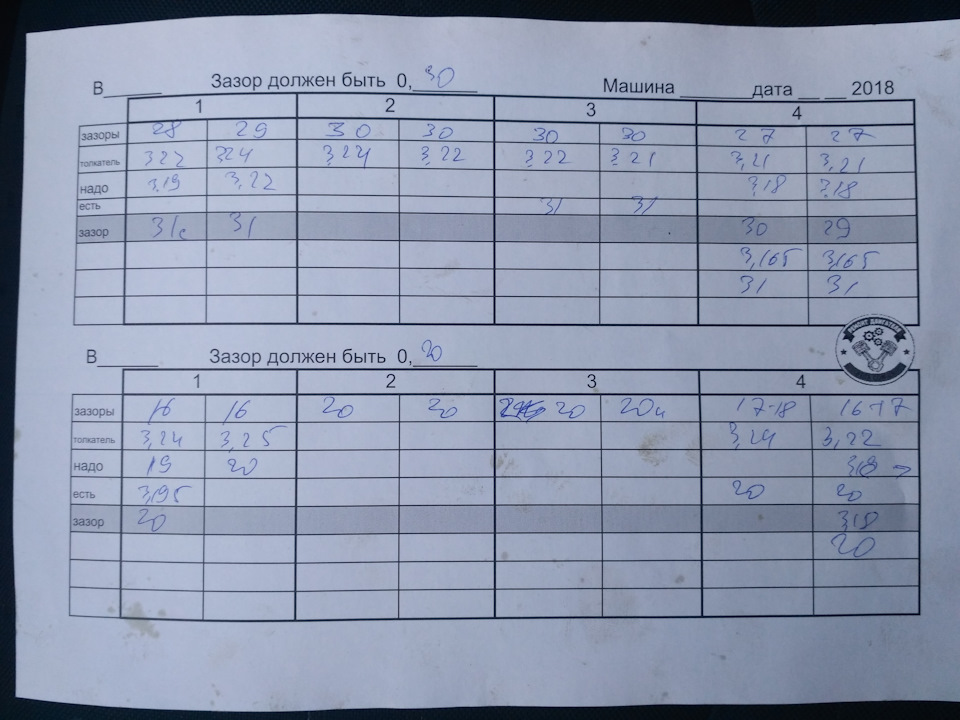 В______ Зазор должен быть 0, 30 Машина _______дата __ __ 2018
1 2 3 4
зазоры 28 29 30 30 30 30 27 27
толкатель 322 324 3,24 3,22 3,22 3,21 3,21 3,21
надо 3,19 3,22 3,18 3,18
есть 31 31
зазор 31 31 30 29
3,165 3,165
31 31
В______ Зазор должен быть 0, 20
1 2 3 4
зазоры 16 16 20 20 20 20 17-18 16-17
толкатель 3,24 3,25 3,24 3,22
надо 19 20 
есть 3,195 20 20
зазор 20 318
20